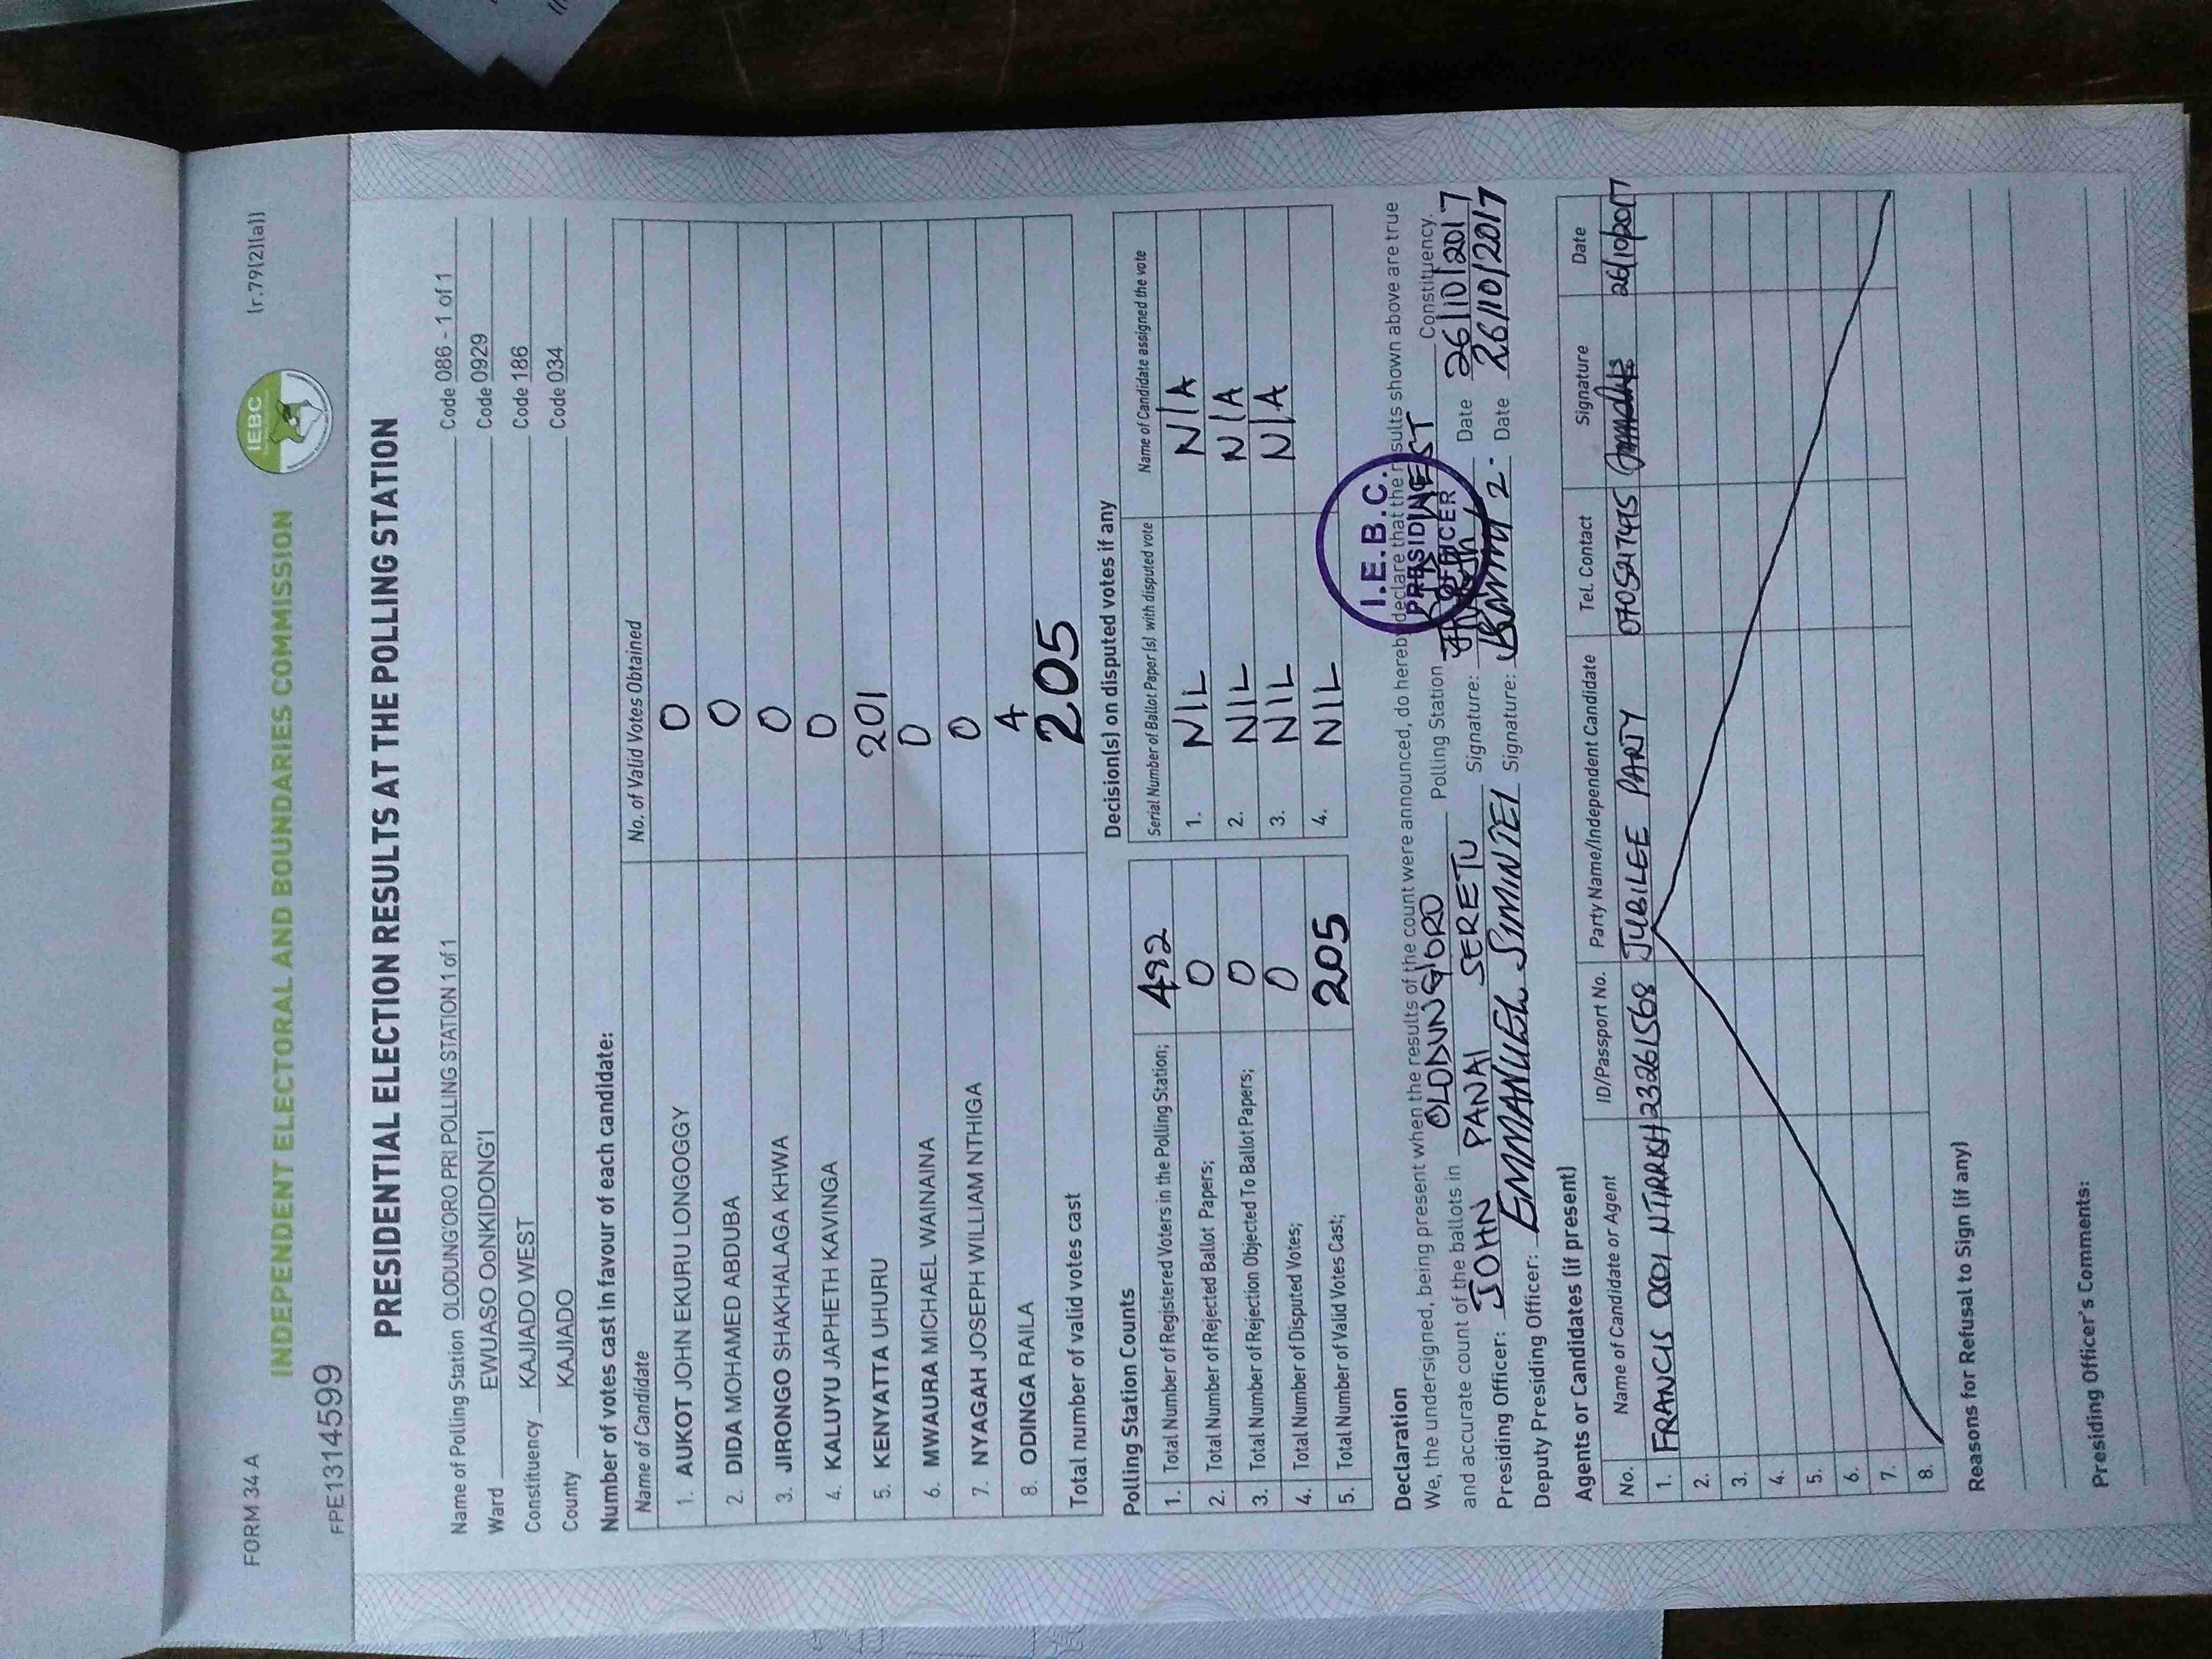 FORM 34A (r.79(2)(a))
IEBC
INDEPENDENT ELECTORAL AND BOUNDARIES COMMISSION
FPE1314599
PRESIDENTIAL ELECTION RESULTS AT THE POLLING STATION
Name of Polling Station OLODUNG'ORO PRI POLLING STATION 1 of 1 Code 086 - 1 of 1
Ward EWUASO OoNKIDONG'I Code 0929
Constituency KAJIADO WEST Code 186
County KAJIADO Code 034
Number of votes cast in favour of each candidate:
Name of Candidate No. of Valid Votes Obtained
1. AUKOT JOHN EKURU LONGOGGY 0
2. DIDA MOHAMED ABDUBA 0
3. JIRONGO SHAKHALAGA KHWA 0
4. KALUYU JAPHETH KAVINGA 0
5. KENYATTA UHURU 201
6. MWAURA MICHAEL WAINAINA 0
7. NYAGAH JOSEPH WILLIAM NTHIGA 0
8. ODINGA RAILA 4
Total number of valid votes cast 205
Polling Station Counts
1. Total Number of Registered Voters in the Polling Station; 492
2. Total Number of Rejected Ballot Papers; 0
3. Total Number of Rejection Objected To Ballot Papers; 0
4. Total Number of Disputed Votes; 0
5. Total Number of Valid Votes Cast; 205
Decision(s) on disputed votes if any
Serial Number of Ballot Paper(s) with disputed vote Name of Candidate assigned the vote
1. NIL N/A
2. NIL N/A
3. NIL N/A
4. NIL
I.E.B.C.
PRESIDING
OFFICER
Declaration
We, the undersigned, being present when the results of the count were announced, do hereby declare that the results shown above are true
and accurate count of the ballots in OLODUNG'ORO Polling Station WEST Constituency.
Presiding Officer: JOHN PANAI SERETU Signature: Date 26/10/2017
Deputy Presiding Officer: EMMANUEL SIMINTEI Signature: Date 26/10/2017
Agents or Candidates (if present)
No. Name of Candidate or Agent ID/Passport No. Party Name/Independent Candidate Tel. Contact Signature Date
1. FRANCIS 23261568 JUBILEE PARTY 26/10/2017
2.
3.
4.
5.
6.
7.
8.
Reasons for Refusal to Sign (if any)
Presiding Officer's Comments: